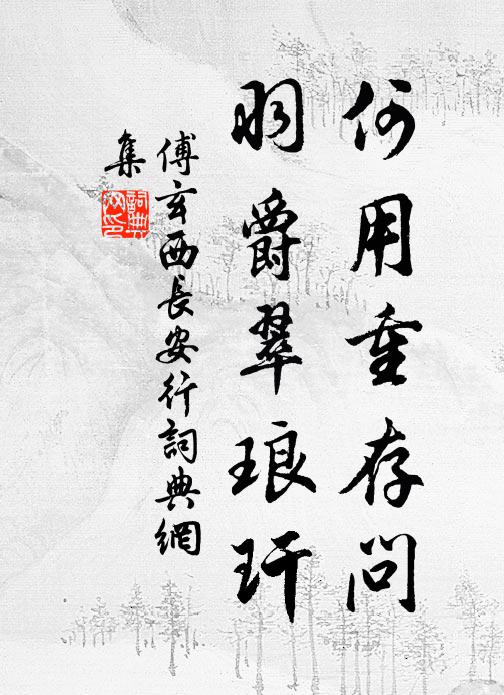 何用重存问
羽爵翠琅玕
傅玄西長安行詞典網
集
詞典
网印